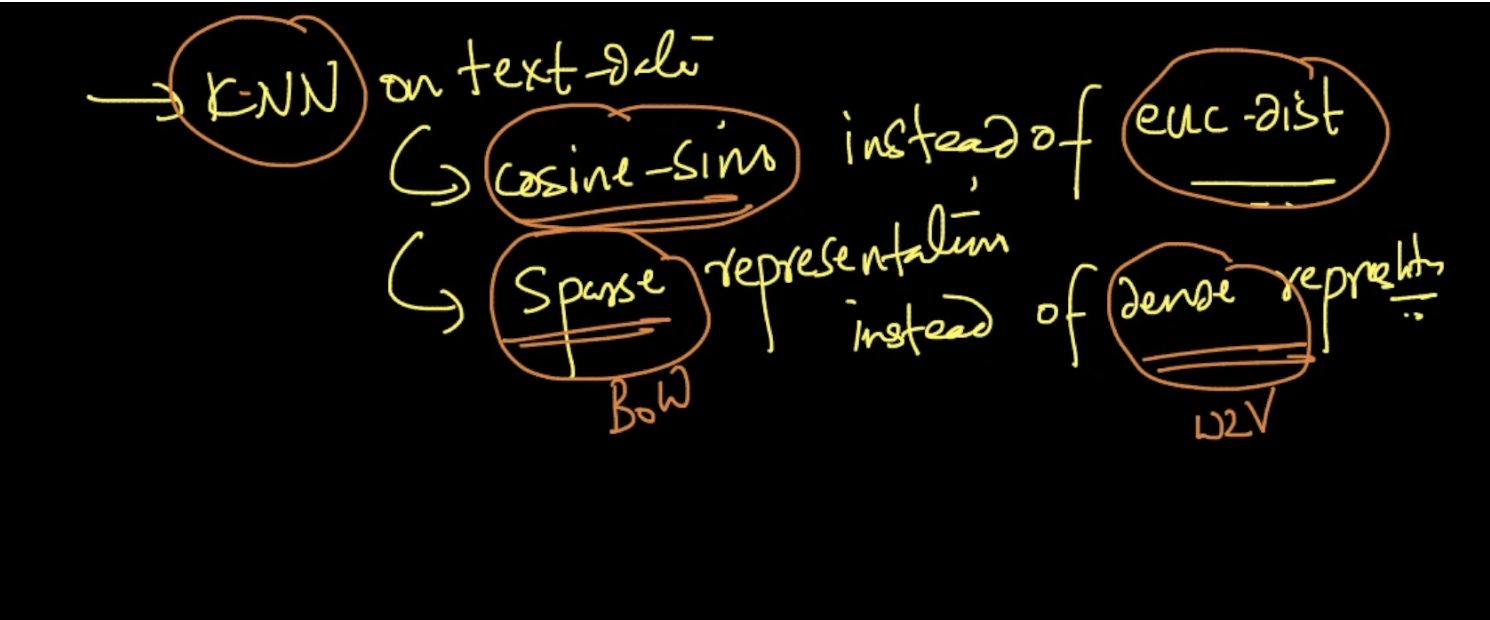 → K-NN on text-data
↳ cosine-sim instead of euc-dist
↳ Sparse representation instead of dense
BoW W2V